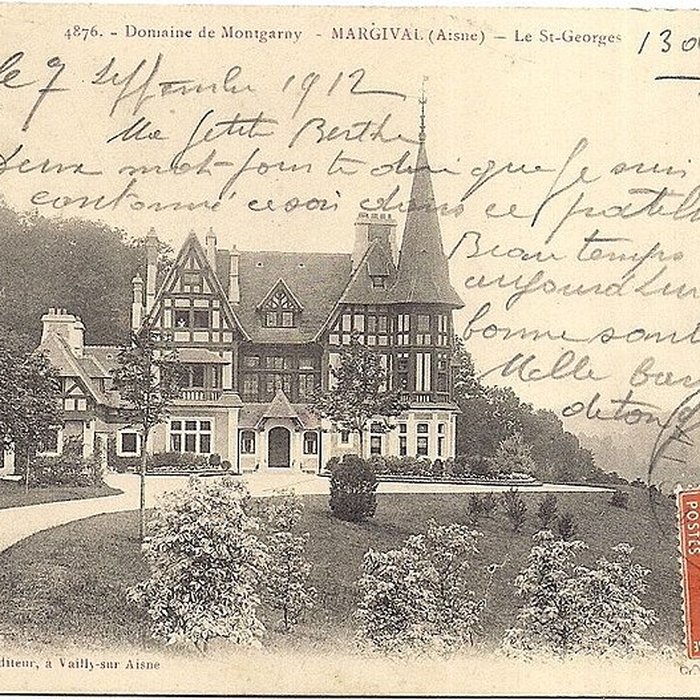 4876. - Domaine de Montgarny - MARGIVAL (Aisne) - Le St-Georges
130
le 7 Septembre 1912
Ma petite Berthe
Deux mot pour te dire que je suis
contonné ce soir dans ce patel
Beau temps
aujourd'hui
bonne santé
Mille
de ton
POSTES
diteur, à Vailly-sur Aisne